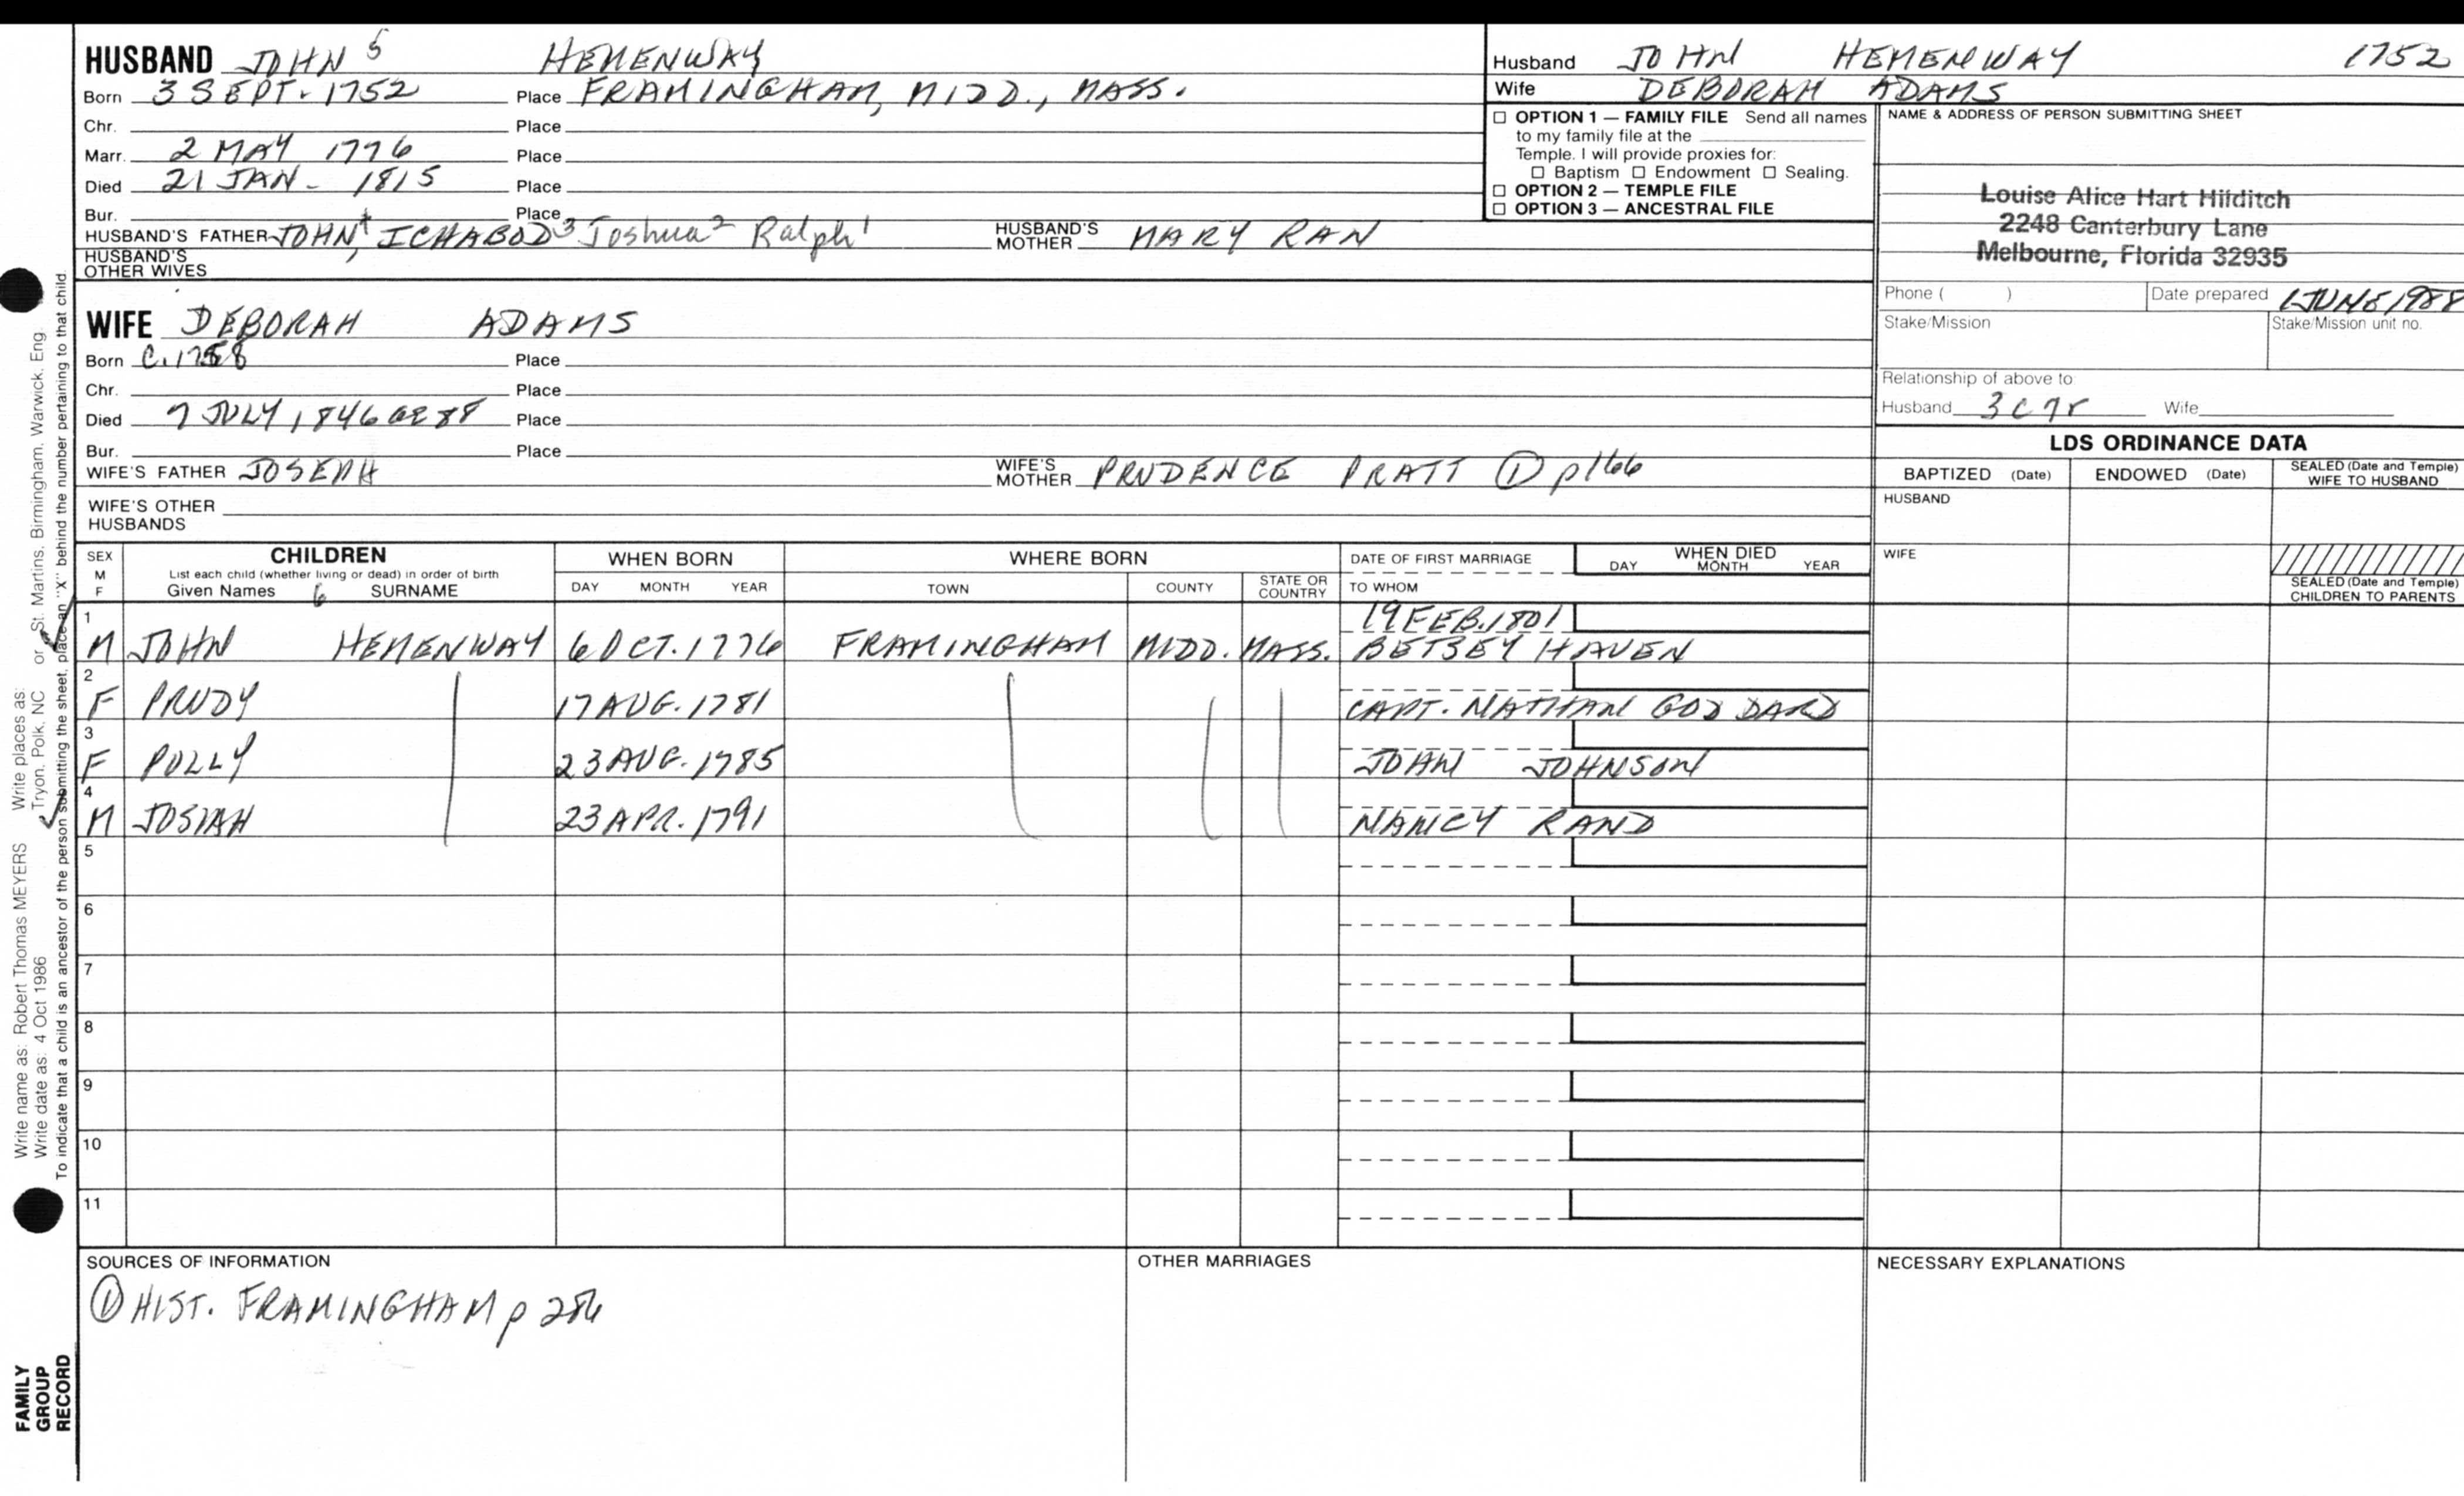 HUSBAND JOHN 5 HEMENWAY
Born 3 SEPT. 1752 Place FRAMINGHAM, MIDD., MASS.
Chr. Place
Marr. 2 MAY 1776 Place
Died 21 JAN - 1815 Place
Bur. Place
HUSBAND'S FATHER JOHN, 4 ICHABOD 3 Joshua 2 Ralph 1 HUSBAND'S MOTHER MARY RAN
HUSBAND'S OTHER WIVES
Husband JOHN HEMENWAY 1752
Wife DEBORAH ADAMS
☐ OPTION 1 — FAMILY FILE Send all names
to my family file at the
Temple. I will provide proxies for:
☐ Baptism ☐ Endowment ☐ Sealing.
☐ OPTION 2 — TEMPLE FILE
☐ OPTION 3 — ANCESTRAL FILE
NAME & ADDRESS OF PERSON SUBMITTING SHEET
Louise Alice Hart Hilditch
2248 Canterbury Lane
Melbourne, Florida 32935
Phone ( ) Date prepared 1 JUNE 1988
Stake/Mission Stake/Mission unit no.
Relationship of above to
Husband 3c7r Wife
WIFE DEBORAH ADAMS
Born C. 1758 Place
Chr. Place
Died 7 JULY 1846 ae 88 Place
Bur. Place
WIFE'S FATHER JOSEPH WIFE'S MOTHER PRUDENCE PRATT ① p166
WIFE'S OTHER
HUSBANDS
LDS ORDINANCE DATA
BAPTIZED (Date) ENDOWED (Date) SEALED (Date and Temple)
WIFE TO HUSBAND
HUSBAND
WIFE
SEALED (Date and Temple)
CHILDREN TO PARENTS
SEX
M
F
CHILDREN
List each child (whether living or dead) in order of birth
Given Names 6 SURNAME
WHEN BORN
DAY MONTH YEAR
WHERE BORN
TOWN COUNTY STATE OR COUNTRY
DATE OF FIRST MARRIAGE
TO WHOM
WHEN DIED
DAY MONTH YEAR
1 19 FEB. 1801
M JOHN HEMENWAY 6 OCT. 1776 FRAMINGHAM MIDD. MASS. BETSEY HAVEN
2
F PRUDY 17 AUG. 1781 CAPT. NATHAN GODDARD
3
F POLLY 23 AUG. 1785 JOHN JOHNSON
4
M JOSIAH 23 APR. 1791 NANCY RAND
5
6
7
8
9
10
11
SOURCES OF INFORMATION
① HIST. FRAMINGHAM p 286
OTHER MARRIAGES
NECESSARY EXPLANATIONS
Write name as: Robert Thomas MEYERS Write places as:
Write date as: 4 Oct 1986 Tryon, Polk, NC or St. Martins, Birmingham, Warwick, Eng.
To indicate that a child is an ancestor of the person submitting the sheet, place an "X" behind the number pertaining to that child.
FAMILY
GROUP
RECORD